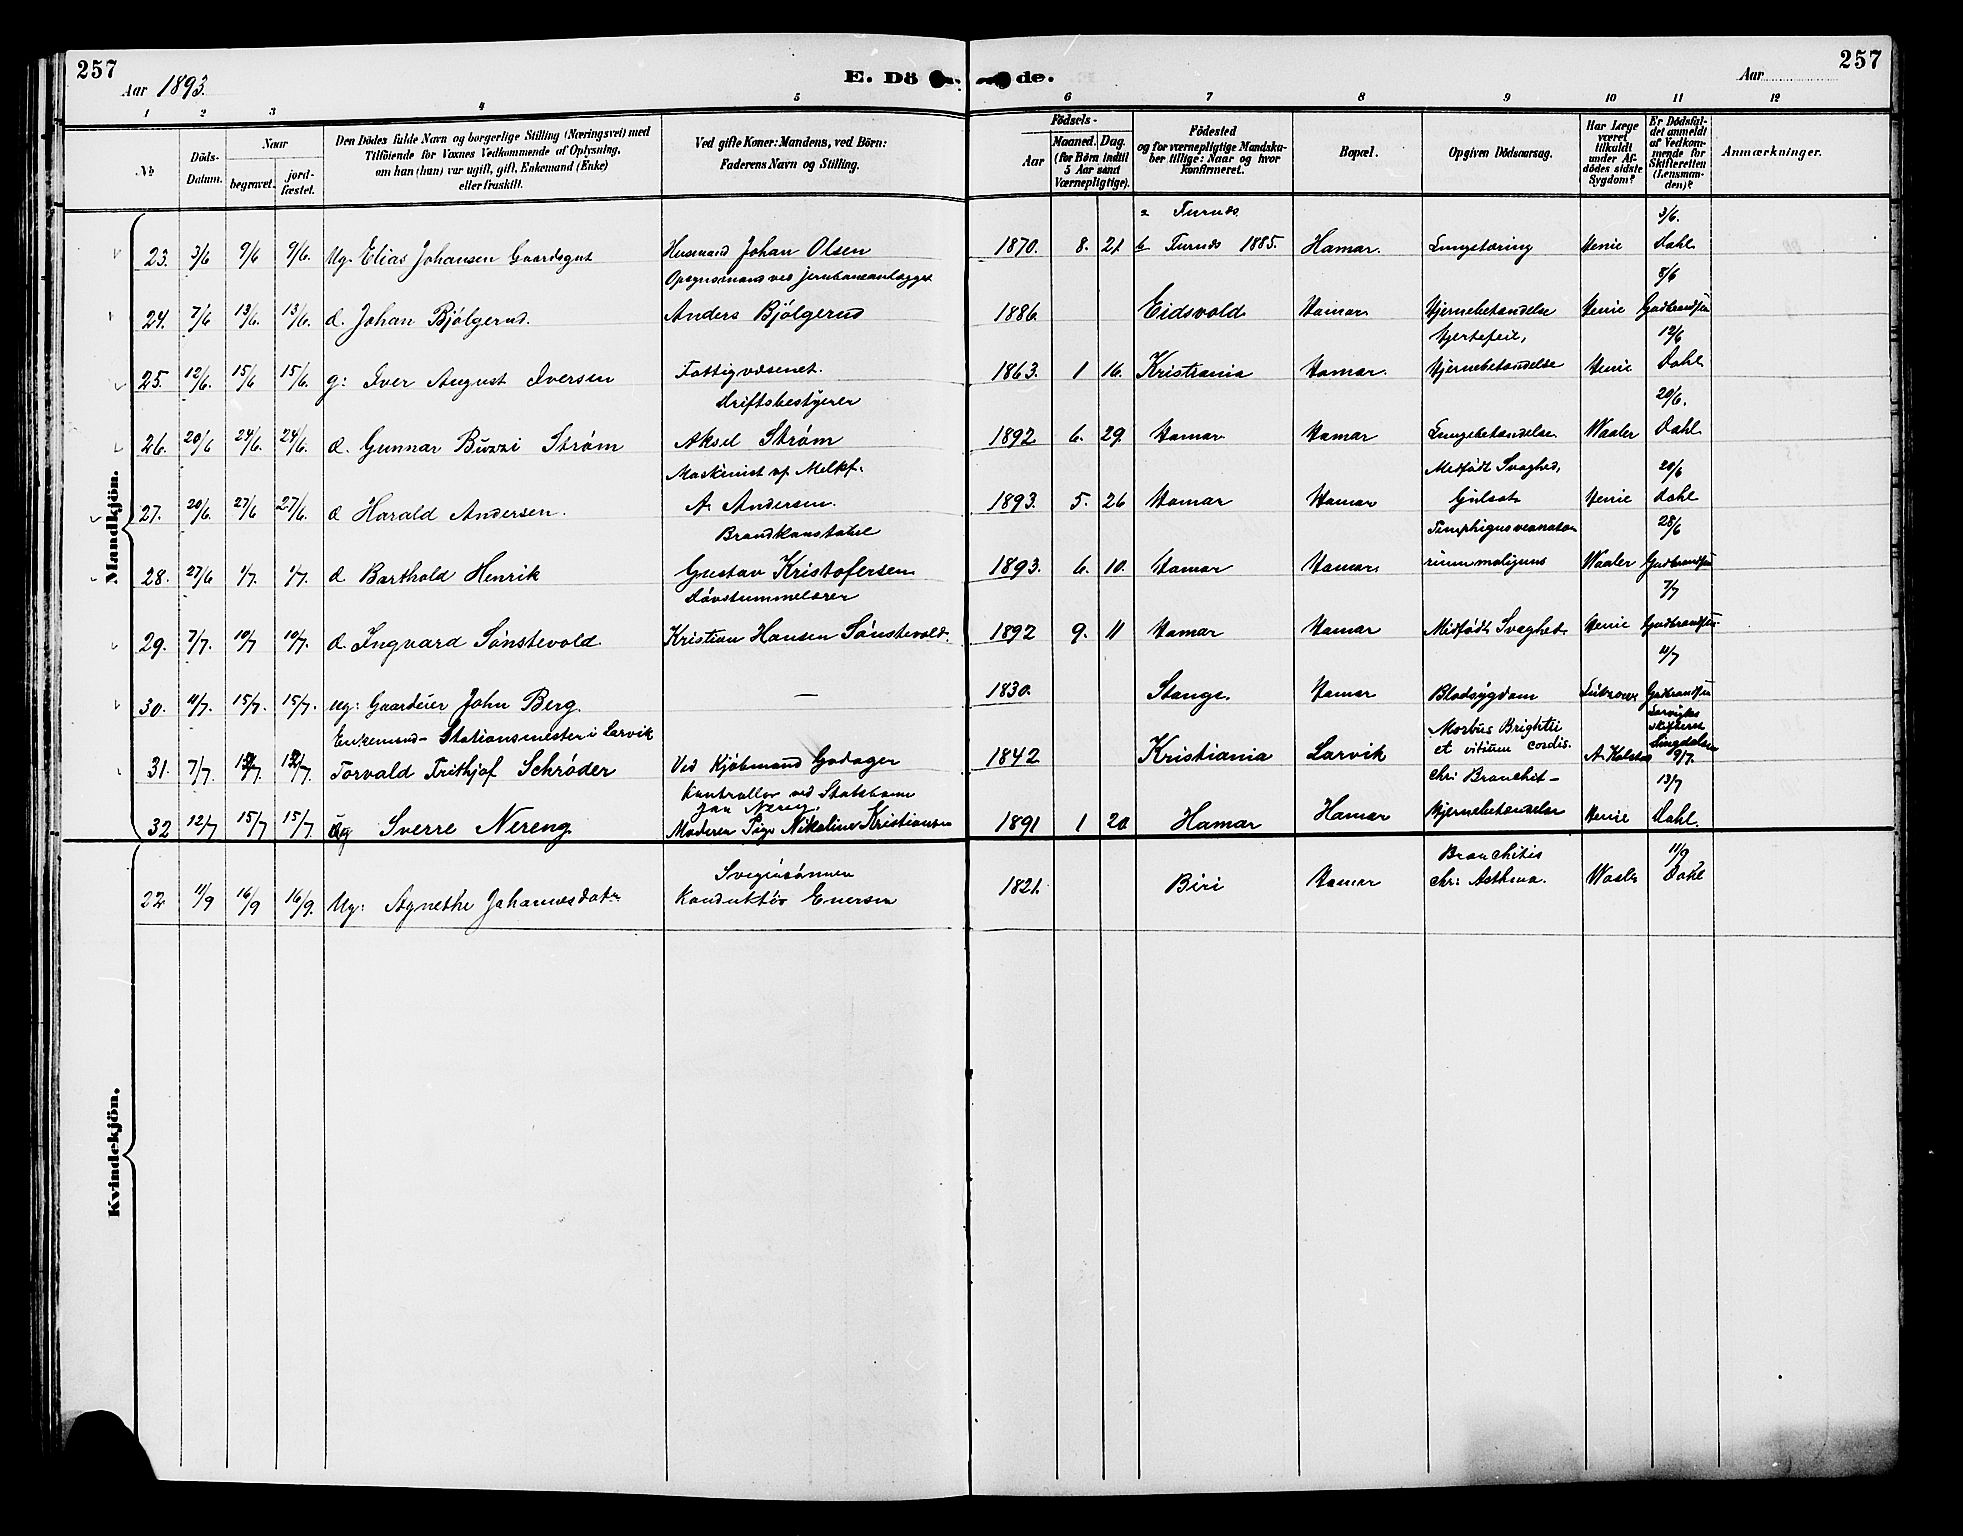 257
Aar 1893.
E. Dö
de.
Aar
257
1 2 3 4 5 6 7 8 9 10 11 12
№
Döds-Datum.
Naar
begravet.
jord-fæstet.
Den Dödes fulde Navn og borgerlige Stilling (Næringsvei) med
Tilföiende for Voxnes Vedkommende af Oplysning,
om han (hun) var ugift, gift, Enkemand (Enke)
eller fraskilt.
Ved gifte Koner: Mandens, ved Börn:
Faderens Navn og Stilling.
Födsels-
Aar
Maaned. Dag.
(for Börn indtil
5 Aar samt
Værnepligtige).
Födested
og for værnepligtige Mandska-
ber tillige: Naar og hvor
konfirmeret.
Bopæl.
Opgiven Dödsaarsag.
Har Læge
været
tilkaldt
under Af-
dödes sidste
Sygdom?
Er Dödsfal-
det anmeldt
af Vedkom-
mende for
Skifteretten
(Lensman-
den)?
Anmærkninger.
Mandkjön.
a Furnds 3/6.
23. 3/6 9/6 9/6. Ug. Elias Johansen Gaardsgut Husmand Johan Olsen 1870. 8. 21 b Furnds 1885. Hamar. Lungetæring Henie Dahl
Opsynsmand ved jernbaneanlægget 8/6
24. 7/6 13/6. 13/6. d. Johan Bjølgerud. Anders Bjølgerud 1886 Eidsvold Hamar Hjernebetændelse Henie Gudbrandsen
Hjertefeil, 12/6
25. 12/6. 15/6 15/6. g: Iver August Iversen Fattigvæsenet. 1863. 1 16. Kristiania Hamar. Hjernebetændelse Henie Dahl
Driftsbestyrer 20/6.
26. 20/6 24/6. 24/6. d. Gunnar Buzzi Strøm Aksel Strøm 1892 6. 29. Hamar Hamar Lungebetændelse Waaler Dahl
Maskinist vp Melkf. Medfødt Svaghed, 20/6
27. 20/6. 27/6 27/6. d Harald Andersen. A. Andersen. 1893. 5. 26 Hamar Hamar Gulsot Henie Dahl
Brandkonstabel 28/6
28. 27/6 1/7. 1/7. d Barthold Henrik Gustav Kristofersen 1893. 6. 10. Hamar Hamar malignus Waaler Gudbrandsen
Døvstummelærer 7/7
29. 7/7. 10/7 10/7. d. Ingvard Sønstevold Kristian Hansen Sønstevold. 1892 9. 11 Hamar Hamar Medfødt Svaghed Henie Gudbrandsen
11/7
30. 11/7. 15/7. 15/7. ug: Gaardeier John Berg. — 1830. Stange Hamar Blodsygdom Gudbrandsen
Enkemand - Stationsmester i Larvik Morbus Brightii Larviks
et vitium cordis.
31. 7/7. 13/7 13/7. Torvald Frithjof Schrøder Ved Kjøbmand Godager 1842 Kristiania Larvik 9/7.
Kontrollør ved Statsbane chr: Bronchit- 13/7
Jan Nereng.
32 12/7 15/7 15/7. ug Sverre Nereng Moderen Pige Nikoline Kristiansen 1891 1 20 Hamar Hamar Hjernebetændelse Henie Dahl.
Kvindekjön.
Svigersønnen Bronchitis 11/9
22 11/9 16/9 16/9. Ug: Agnethe Johannesdatr Konduktør Enersen 1821. Biri Hamar chr: Asthma. Waaler Dahl